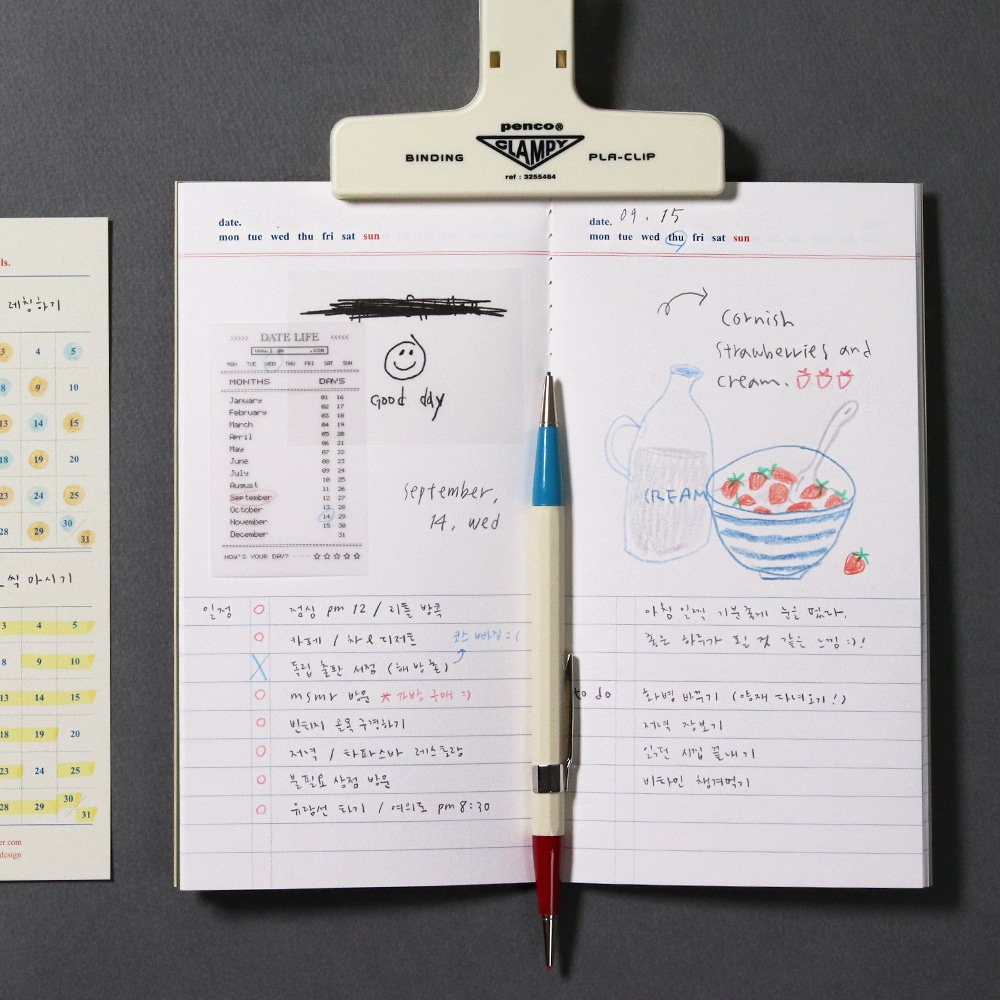 penco®
BINDING CLAMPY PLA-CLIP
ref : 3255464
ls.
레칭하기
3 4 5
8 9 10
13 14 15
18 19 20
23 24 25
28 29 30
31
씩 마시기
3 4 5
8 9 10
13 14 15
18 19 20
23 24 25
28 29 30
31
er.com
design
date.
mon tue wed thu fri sat sun
DATE LIFE
MON TUE WED THU FRI SAT SUN
MONTHS DAYS
January 01 16
February 02 17
March 03 18
April 04 19
May 05 20
June 06 21
July 07 22
August 08 23
September 09 24
October 10 25
November 11 26
December 12 27
13 28
14 29
15 30
31
HOW'S YOUR DAY? ☆☆☆☆☆
Good day
September,
14, wed
일정 점심 pm 12 / 리틀 방콕
카페 / 차 & 디저트 코스 빠짐 :(
독립 출판 서점 (해방촌)
msmr 방문 * 가방 구매 :)
빈티지 골목 구경하기
저녁 / 타파스바 레스토랑
불필요 상점 방문
유람선 타기 / 여의도 pm 8:30
date. 09. 15
mon tue wed thu fri sat sun
Cornish
strawberries and
cream.
CREAM
아침 일찍 기분좋게 눈을 떴다.
좋은 하루가 될 것 같은 느낌 :)!
to do 화병 바꾸기 (양재 다녀오기!)
저녁 장보기
읽던 시집 끝내기
비타민 챙겨먹기